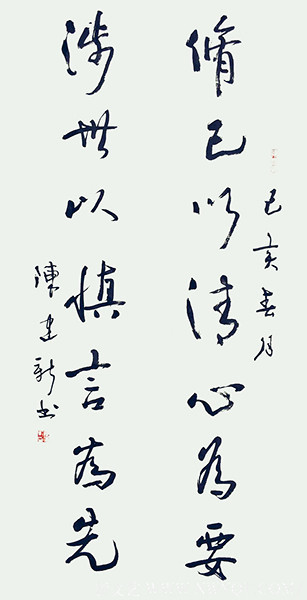 己亥春月
脩己以清心為要
涉世以慎言為先
陳建新书